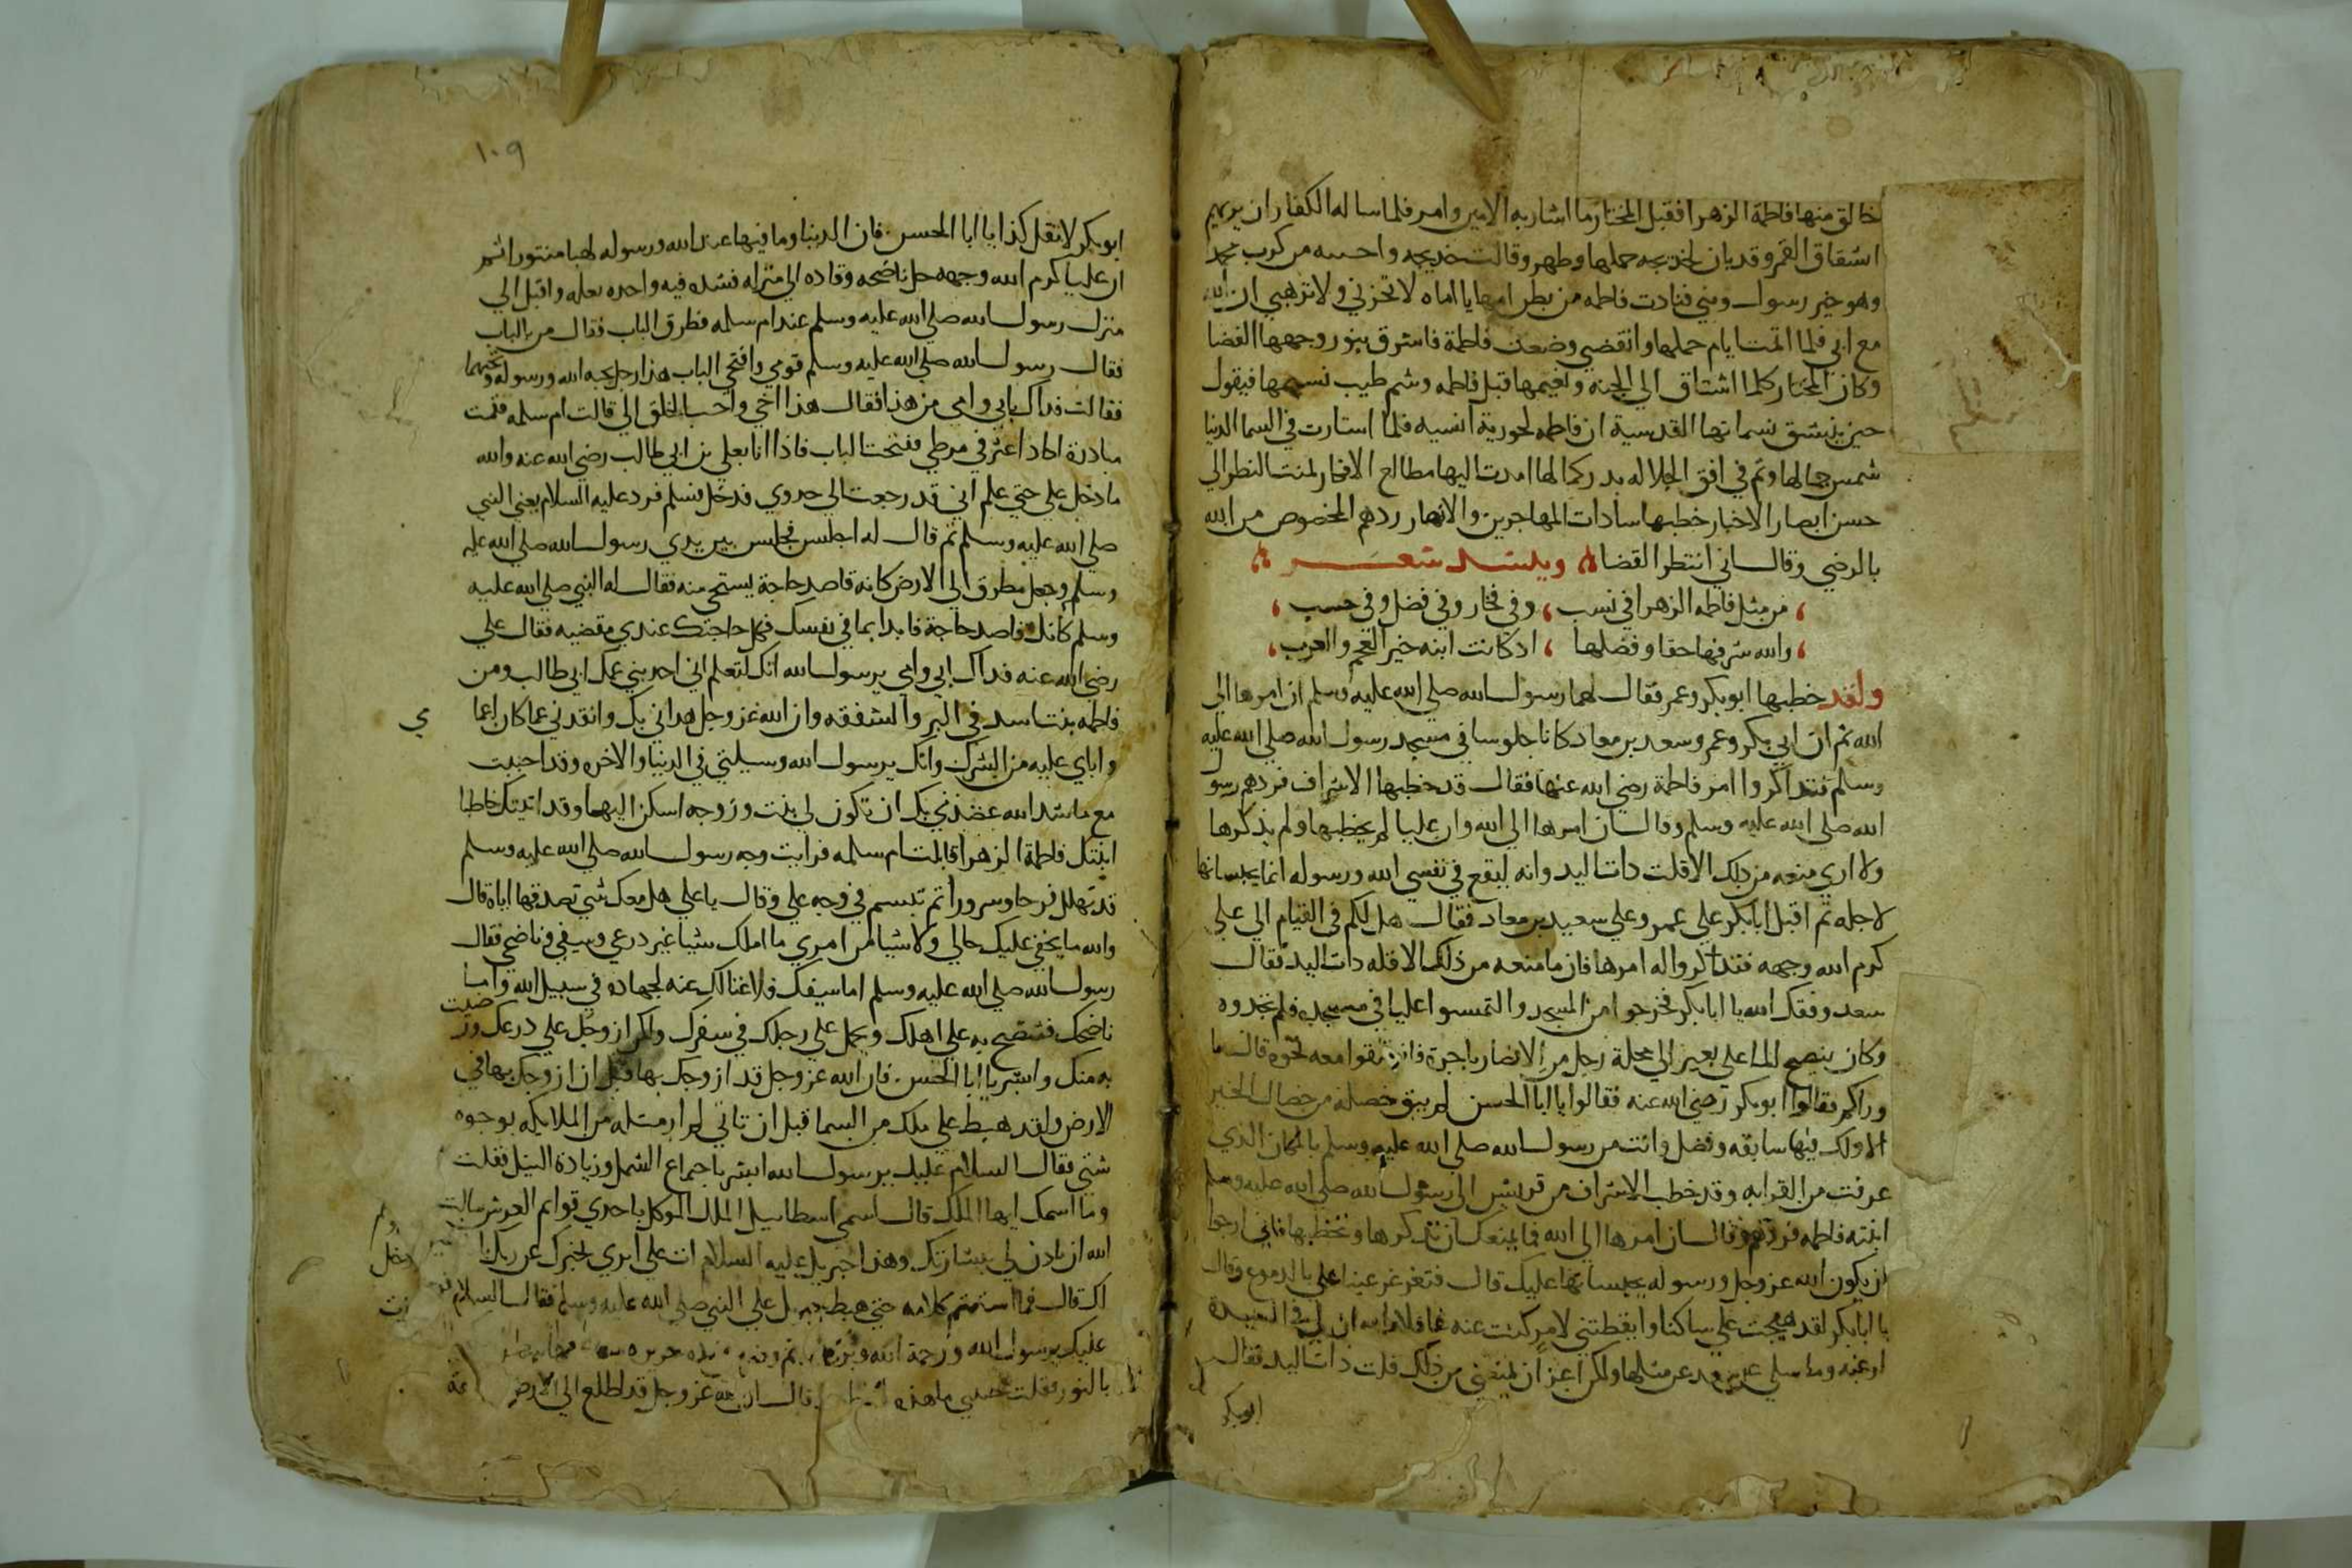 خالق منها فاطمة الزهرا فقبل المختار ما اشار به الامين وامر فلما ساله الكفار ان يريهم
انشقاق القمر وقد بان لخديجه حملها وظهر وقالت خديجه واخيبه من كدب محمد
وهو خير رسول ونبي فنادت فاطمه من بطن امها يا اماه لا تحزني ولا ترهبي ان الله
مع ابي فلما اتمت ايام حملها وانقضي وضعت فاطمة فاشرق بنور وجهها الفضا
وكان المختار كلما اشتاق الي الجنه ونعيمها قبل فاطمه وشم طيب نسيمها فيقول
حين ينشق نسماتها القدسية ان فاطمه لحورية انسيه فلما استنارت في السما الدنيا
شمس جمالها وتم في افق الجلاله بدر كمالها امدت اليها مطالع الافكار لمنت النظر الي
حسن ابصار الاخيار خطبها سادات المهاجرين والانصار ردهم المخصوص من الله
بالرضي وقال اني انتظر القضا وينشد شعر
من مثل فاطمه الزهرا في نسب ، وفي فخار وفي فضل وفي حسب
والله شرفها حقا وفضلها ، اد كانت ابنه خير العجم والعرب
ولقد خطبها ابوبكر وعمر فقال لهما رسول الله صلي الله عليه وسلم ان امرها الي
الله ثم ان ابي بكر وعمر وسعد بن معاد كانا جلوسا في مسجد رسول الله صلي الله عليه
وسلم فتداكروا امر فاطمة رضي الله عنها فقال قد خطبها الاشراف فردهم رسول
الله صلي الله عليه وسلم وقال ان امرها الي الله وان عليا لم يخطبها ولم يذكرها
ولا اري منعه من دلك الا قلت دات اليد وانه ليقع في نفسي الله ورسوله انما يحبسانها
لاجله ثم اقبل ابابكر علي عمر وعلي سعيد بن معاد فقال هل لكم في القيام الي علي
كرم الله وجهه فتداكروا له امرها فان ما منعه من ذلك الا قله دات اليد فقال
سعد وفقك الله يا ابابكر فخرجوا من المسجد والتمسوا عليا في مسجده فلم يجدوه
وكان ينضح الماء علي بعير الي محلة رجل من الانصار باجرة فانطلقوا معه نحوه قال ما
وراكم فقالوا ابوبكر رضي الله عنه فقالوا يا ابا الحسن لم يبق خصله من خصال الخير
الا ولك فيها سابقه وفضل وانت من رسول الله صلي الله عليه وسلم بالمكان الذي
عرفت من القرابه وقد خطب الاشراف من قريش الي رسول الله صلي الله عليه وسلم
ابنته فاطمه فردهم وقال ان امرها الي الله فما يمنعك ان تذكرها وتخطبها فاني ارجوا
ان يكون الله عز وجل ورسوله يحبسانها عليك قال فتغرغر عينا علي بالدموع وقال
يا ابابكر لقد هيجت علي ساكنا وايقظتني لامر كنت عنه غافلا والله ان لي في السيدة
ارغبه وما مثلي عن مثلها ولكن اعز ان يمنعني من ذلك قلت دات اليد فقال
ابوبكر
١٠٩
ابوبكر لا تقل كذا يا ابا الحسن فان الدنيا وما فيها عند الله ورسوله لهبا منثورا ثم
ان عليا كرم الله وجهه حل ناضحه وقاده الي منزله فشده فيه واخده نعله واقبل الي
منزل رسول الله صلي الله عليه وسلم عند ام سلمه فطرق الباب فقال من بالباب
فقال رسول الله صلي الله عليه وسلم قومي وافتحي الباب هذا رجل يحبه الله ورسوله ويحبهما
فقالت فداك بابي وامي من هذا فقال هذا اخي واحب الخلق الي قالت ام سلمه فقمت
مبادرة اكاد اعثر في مرطي ففتحت الباب فاذا انا بعلي بن ابي طالب رضي الله عنه والله
ما دخل علي حتي علم اني قد رجعت الي خدري فدخل فسلم فرد عليه السلام يعني النبي
صلي الله عليه وسلم ثم قال له اجلس فجلس بين يدي رسول الله صلي الله عليه
وسلم وجعل مطرق الي الارض كانه قاصد حاجة يستحي منه فقال له النبي صلي الله عليه
وسلم كانك قاصد حاجة فابدا بما في نفسك فكل حاجتك عندي مقضيه فقال علي
رضي الله عنه فداك ابي وامي يرسول الله انك لتعلم اني احد بني عمك ابي طالب ومن
فاطمه بنت اسد في البر والشفقه وان الله عز وجل هداني بك وانقدني عما كان اعما
مي
واباي عليه من الشرك وانك يرسول الله وسيلتي في الدنيا والاخره وقد احببت
مع ما شد الله عضدني بك ان تكون لي بنت وزوجه اسكن اليها وقد اتيتك خاطبا
ابنتك فاطمة الزهرا قالت ام سلمه فرايت وجه رسول الله صلي الله عليه وسلم
قد تهلل فرحا وسرورا ثم تبسم في وجه علي وقال يا علي هل معك شي تصدقها اياه قال
والله ما يخفي عليك حالي ولا شيا من امري ما املك شيا غير درعي وسيفي وناضحي فقال
رسول الله صلي الله عليه وسلم اما سيفك فلا غنا لك عنه لجهاده في سبيل الله واما
ناضحك فتنضح به علي اهلك ويحمل علي رحلك في سفرك ولكن ازوجك علي درعك ورضيت
به منك وابشر يا ابا الحسن فان الله عز وجل قد ازوجك بها قبل ان ازوجك بها في
الارض ولقد هبط علي ملك من السما قبل ان تاتي لم ار مثله من الملايكه بوجوه
شتي فقال السلام عليك يرسول الله ابشر باجماع الشمل وزيادة النسل فقلت
وما اسمك ايها الملك قال اسمي اسطاييل الملك الموكل باحدي قوايم العرش سالت
الله ان يادن لي ببشارتك وهذا جبريل عليه السلام ات علي اثري يخبرك عن ربك
قال فما استتم كلامه حتي هبط جبريل علي النبي صلي الله عليه وسلم فقال السلام
عليك يرسول الله ورحمة الله وبركاته ثم
بالنور فقلت حبيبي ما هذه قال ان الله عز وجل قد اطلع الي الارض